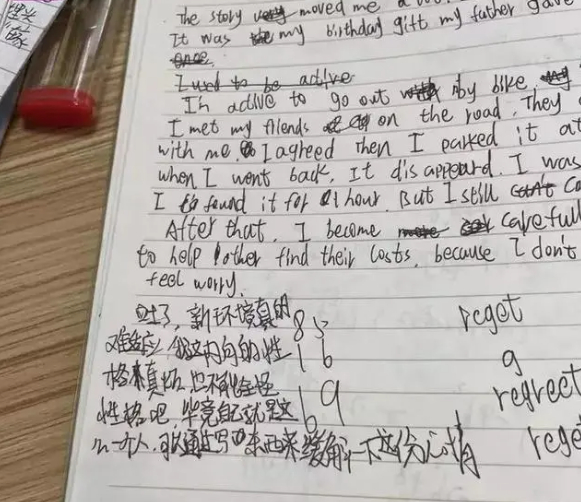 The story moved me a
It was my birthday gift my father gave
once.
I used to be active
In active to go out by bike
I met my friends on the road. They
with me. I agreed then I parked it at
when I went back, It disappeard. I was
I found it for 1 hour. But I still can't
After that, I become carefull
to help other find their losts, because I don't
feel worry.
新环境真的 85 reget
难适应 我这内向的性 16 g
格来真 也不能全怪 19 regreet
性格吧, 毕竟自己就是这 6 rege
么一个人, 可以通过写 东西来缓解一下这份心情